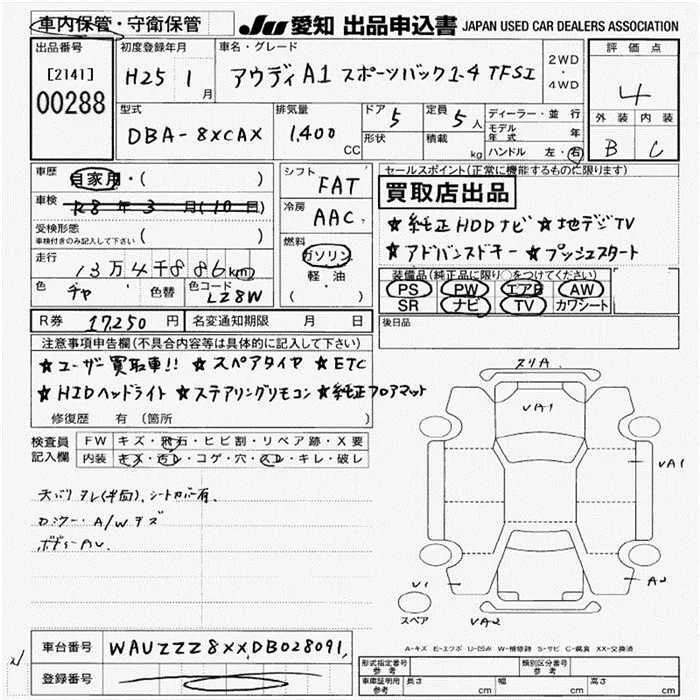 車内保管・守衛保管
JU 愛知 出品申込書 JAPAN USED CAR DEALERS ASSOCIATION
出品番号 初度登録年月 車名・グレード 評価点
[2141] H25 1月 アウディA1 スポーツバック1-4 TFSI 2WD・4WD 4
00288
外装 内装
型式 排気量 ドア 5 定員 5人 ディーラー・並行 B C
DBA-8XCAX 1.400CC 形状 積載 kg モデル年式 年
ハンドル 左・右
車歴 自家用・( ) シフト FAT セールスポイント(正常に機能するものに限ります)
車検 R8年3月(10日) 買取店出品
受検形態 車検付きのみ記入して下さい ( ) 冷房 AAC ★純正HDDナビ ★地デジTV
走行 13万4千886km 燃料 ガソリン・軽・油 ( ) ★アドバンスドキー ★プッシュスタート
色 チャ 色替 色コード LZ8W 装備品(純正品に限り○をつけてください)
PS PW エアB AW
SR ナビ TV カワシート
R券 17,250円 名変通知期限 月 日 後日品
注意事項申告欄(不具合内容等は具体的に記入して下さい)
★ユーザー買取車!! ★スペアタイヤ ★ETC
★HIDヘッドライト ★ステアリングリモコン ★純正フロアマット
修復歴 有 (箇所 )
検査員記入欄 FW キズ・飛石・ヒビ割・リペア跡・X要
内装 キズ・汚レ・コゲ・穴・スレ・キレ・破レ
シートカバー有.
A/Wキズ
ボディーAU.
スリA.
VA1
VA1
V1
A2
VA2
スペア
A-キズ E-エクボ U-凹ミ W-補修跡 S-サビ C-腐食 XX-交換済
車台番号 WAUZZZ8XXDB028091
登録番号
形式指定番号 参考 類別区分番号 参考
車庫証明用 参考 長さ cm 幅 cm 高さ cm